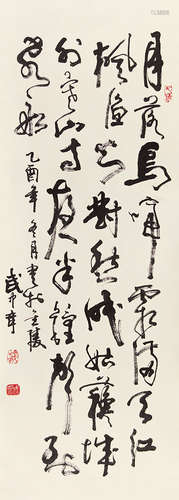 月落烏啼霜滿天江
楓漁火對愁眠姑蘇城
外寒山寺夜半鐘聲到
客船
乙酉年冬月書於金陵
武中奇